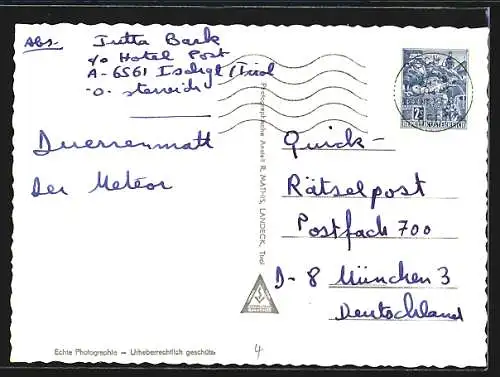 Abs. Jutta Bark
c/o Hotel Post
A-6561 Ischgl/Tirol
-o- sterreich
Duerrenmatt
Der Meteor
Photographische Anstalt R. MATHIS, LANDECK, Tirol
Quick-
Rätselpost
Postfach 700
D-8 München 3
Deutschland
Echte Photographie – Urheberrechtlich geschützt
4